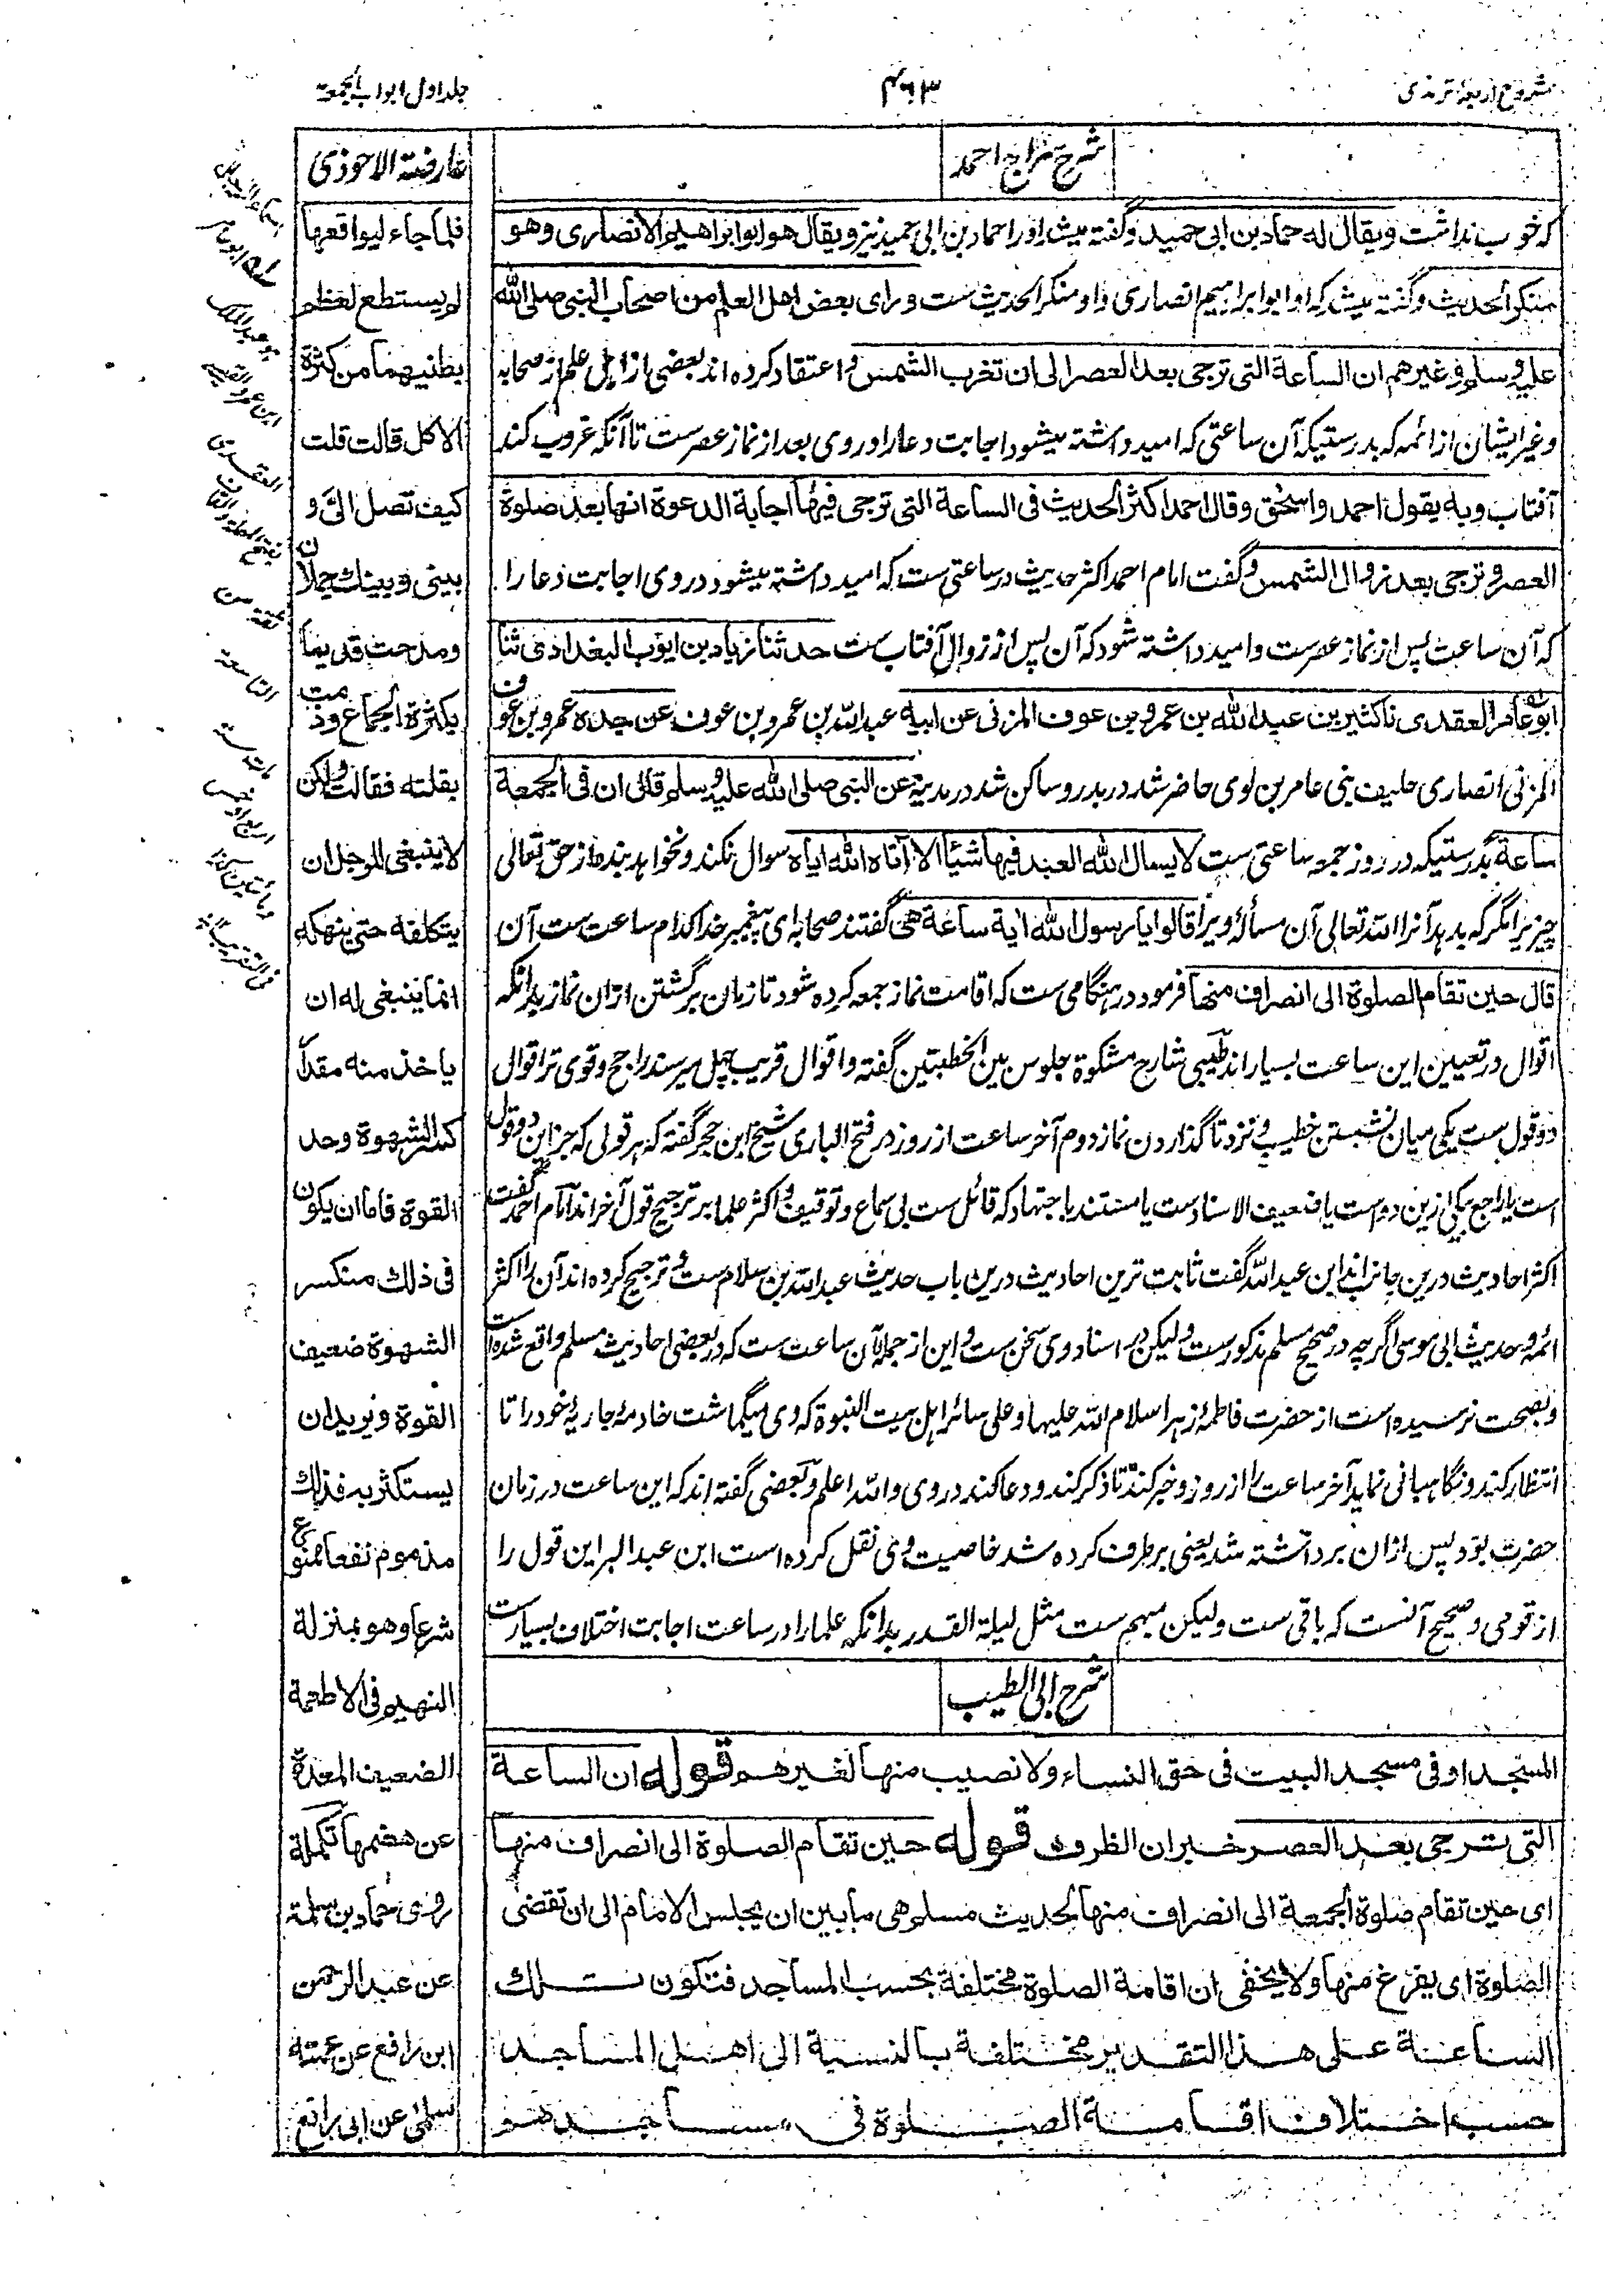 شروح اربعهٔ ترمذی
جلد اول ابواب الجمعة
شرح سراج احمد
که خوب نداشت ویقال له حماد بن ابی حمید وگفته میشد اورا حماد بن ابی حمید نیز ویقال هو ابو ابراهیم الانصاری وهو
منکر الحدیث وگفته میشد که او ابو ابراهیم انصاری و او منکر الحدیث ست و رای بعض اهل العلم من اصحاب النبی صلی الله
علیه وسلم وغیرهم ان الساعة التی ترجی بعد العصر الی ان تغرب الشمس و اعتقاد کرده اند بعضی از اهل علم از صحابه
وغیر ایشان از ائمه که بدرستیکه آن ساعتی که امید داشته میشود اجابت دعا را در وی بعد از نماز عصرست تا آنکه غروب کند
آفتاب وبه یقول احمد واسحٰق وقال احمد اکثر الحدیث فی الساعة التی ترجی فیها اجابة الدعوة انها بعد صلوة
العصر وترجی بعد زوال الشمس وگفت امام احمد اکثر حدیث در ساعتی ست که امید داشته میشود در وی اجابت دعا را
که آن ساعت پس از نماز عصرست و امید داشته شود که آن پس از زوال آفتاب ست حدثنا زیاد بن ایوب البغدادی ثنا
ابو عامر العقدی نا کثیر بن عبد الله بن عمرو بن عوف المزنی عن ابیه عبد الله بن عمرو بن عوف عن جده عمرو بن عوف
المزنی انصاری حلیف بنی عامر بن لوی حاضر شد در بدر و ساکن شد در مدینه عن النبی صلی الله علیه وسلم قال ان فی الجمعة
ساعة بدرستیکه در روز جمعه ساعتی ست لا یسال الله العبد فیها شیئا الا آتاه الله ایاه سوال نکند و نخواهد بنده از حق تعالی
چیزیرا مگر که بدهد آنرا الله تعالی آن مسأله ویرا قالوا یا رسول الله ایة ساعة هی گفتند صحابه ای پیغمبر خدا کدام ساعت ست آن
قال حین تقام الصلوة الی انصراف منها فرمود در هنگامی ست که اقامت نماز جمعه کرده شود تا زمان برگشتن ازان نماز بدانکه
اقوال در تعیین این ساعت بسیار اند طیبی شارح مشکوة جلوس بین الخطبتین گفته و اقوال قریب چهل میرسند راجح و قوی تر اقوال
دو قول ست یکی میان نشستن خطیب و نزد تا گذاردن نماز دوم آخر ساعت از روز در فتح الباری شیخ ابن حجر گفته که هر قولی که جز این دو قول
است یا راجع بیکی ازین دو است یا ضعیف الاسنادست یا مستند باجتهاد که قائل ست بی سماع و توقیف و اکثر علما بر ترجیح قول آخر اند امام احمد گفت
اکثر احادیث درین جانب اند ابن عبد الله گفت ثابت ترین احادیث درین باب حدیث عبد الله بن سلام ست و ترجیح کرده اند آن را اکثر
ائمه و حدیث ابی موسی اگرچه در صحیح مسلم مذکورست ولیکن در اسناد وی سخن ست و این از جمله آن ساعت ست که در بعضی احادیث مسلم واقع شده است
و بصحت نرسیده است از حضرت فاطمهٔ زهرا سلام الله علیها وعلی سائر اهل بیت النبوة که وی میگماشت خادمهٔ جاریهٔ خود را تا
انتظار کند و نگاهبانی نماید آخر ساعت را از روز و خبر کند تا ذکر کند و دعا کند در وی والله اعلم و بعضی گفته اند که این ساعت در زمان
حضرت بود پس ازان برداشته شد یعنی برطرف کرده شد خاصیت وی نقل کرده است ابن عبد البر این قول را
از قومی و صحیح آنست که باقی ست ولیکن مبهم ست مثل لیلة القدر بدانکه علما را در ساعت اجابت اختلاف بسیارست
شرح ابی الطیب
المسجد او فی مسجد البیت فی حق النساء ولا نصیب منها لغیرهم قوله ان الساعة
التی ترجی بعد العصر خبر ان الظرف قوله حین تقام الصلوة الی انصراف منها
ای حین تقام صلوة الجمعة الی انصراف منها لحدیث مسلم هی ما بین ان یجلس الامام الی ان تقضی
الصلوة ای یفرغ منها ولا یخفی ان اقامة الصلوة مختلفة بحسب المساجد فتکون تلک
الساعة علی هذا التقدیر مختلفة بالنسبة الی اهل المساجد
حسب اختلاف اقامة الصلوة فی مساجدهم
عارضة الاحوذی
فلما جاء لیواقعها
لم یستطع لعظم
بطنیهما من کثرة
الاکل قالت قلت
کیف تصل الیّ و
بینی وبینک جبلان
ومدحت قدیما
بکثرة الجماع وذمت
بقلته فقالت ولکن
لا ینبغی للرجل ان
یتکلفه حتی ینهکه
انما ینبغی له ان
یاخذ منه مقدار
کسر الشهوة وحد
القوة فاما ان یکون
فی ذلک منکسر
الشهوة ضعیف
القوة ویرید ان
یستکثر به فذلک
مذموم نفعا ممنوع
شرعا وهو بمنزلة
النهیم فی الاطعمة
الضعیف المعدة
عن هضمها تکملة
روی حماد بن سلمة
عن عبد الرحمن
ابن رافع عن عمته
سلمی عن ابی رافع